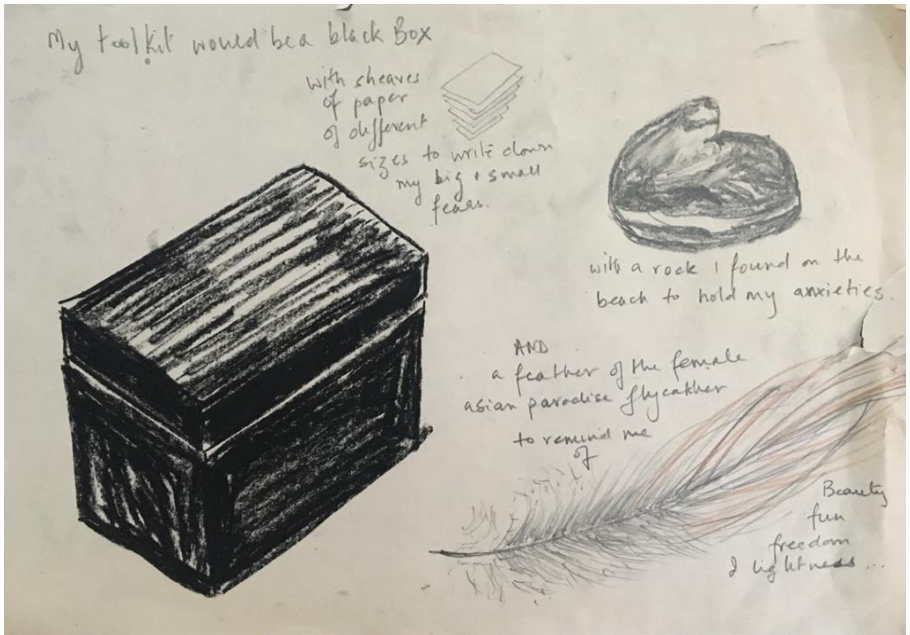 My toolkit would be a black Box
with sheaves
of paper
of different
sizes to write down
my big + small
fears.
with a rock I found on the
beach to hold my anxieties.
AND
a feather of the female
asian paradise flycather
to remind me
of
Beauty
fun
freedom
& lightness...